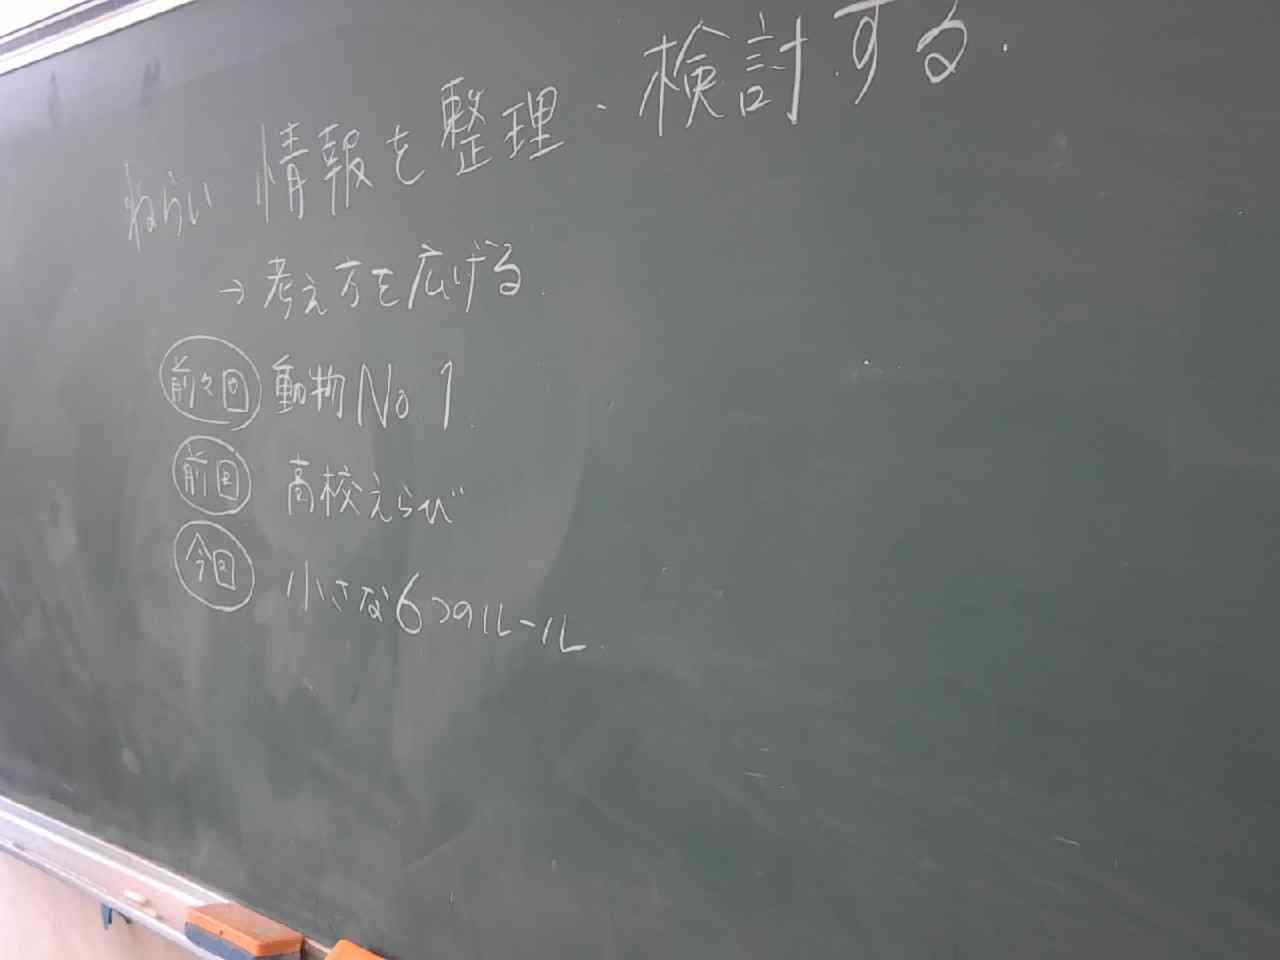 ねらい 情報を整理・検討する.
→考え方を広げる.
前々回 動物No1.
前回 高校えらび
今回 小さな6つのルール.